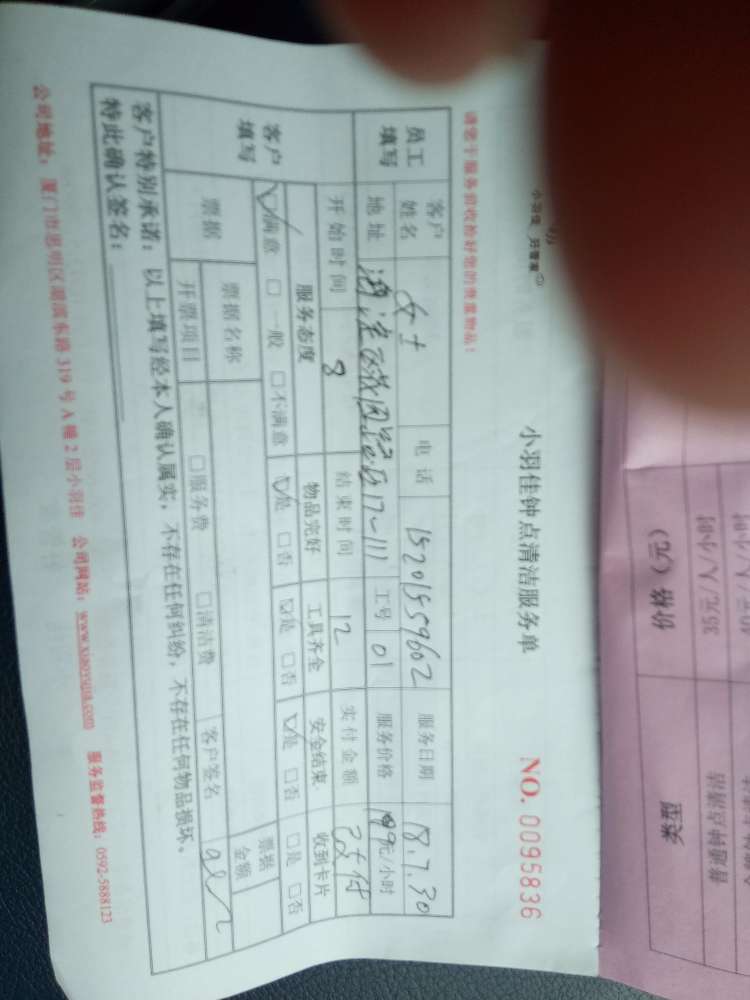 小羽佳 好管家
小羽佳钟点清洁服务单
NO. 0095836
请您于服务前收拾好您的贵重物品!
员工填写 客户姓名 女士 电话 15201559602 服务日期 18.7.30
地址 17-111 工号 01 服务价格 元/小时
开始时间 8 结束时间 12 实付金额 已付
客户填写 服务态度 物品完好 工具齐全 安全结束 收到卡片
☑满意 □一般 □不满意 ☑是 □否 ☑是 □否 ☑是 □否 □是 □否
票据 票据名称 票据金额
开票项目 □服务费 □清洁费 客户签名
客户特别承诺:以上填写经本人确认属实,不存在任何纠纷,不存在任何物品损坏。
特此确认签名:
公司地址:厦门市思明区湖滨东路319号A幢2层小羽佳 公司网站:www.xiaoyujia.com 服务监督热线:0592-5888123
类型 价格(元)
普通钟点清洁 35元/人/小时